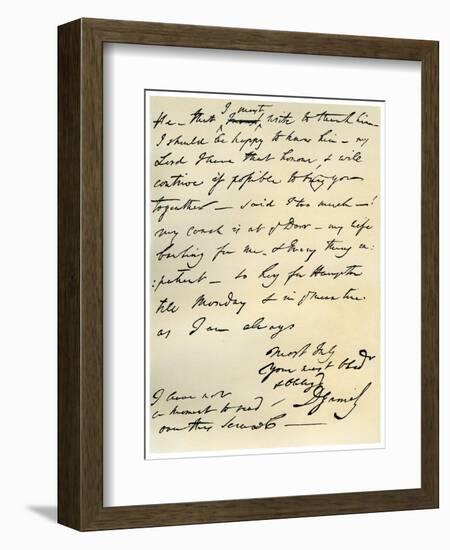 He - that I must write to thank him -
I should be happy to know him - my
Lord I have that honour, & will
contrive if possible to bring you
together - said I too much - !
my coach is at ye Door - my wife
bawling for me - & Every thing im:
:patient - so Hey for Hampton
till Monday & in ye mean time
as I am always
Most truly
Your most Obedt
& Obligd
D Garrick
I have not
a moment to read
over this Scrawl -